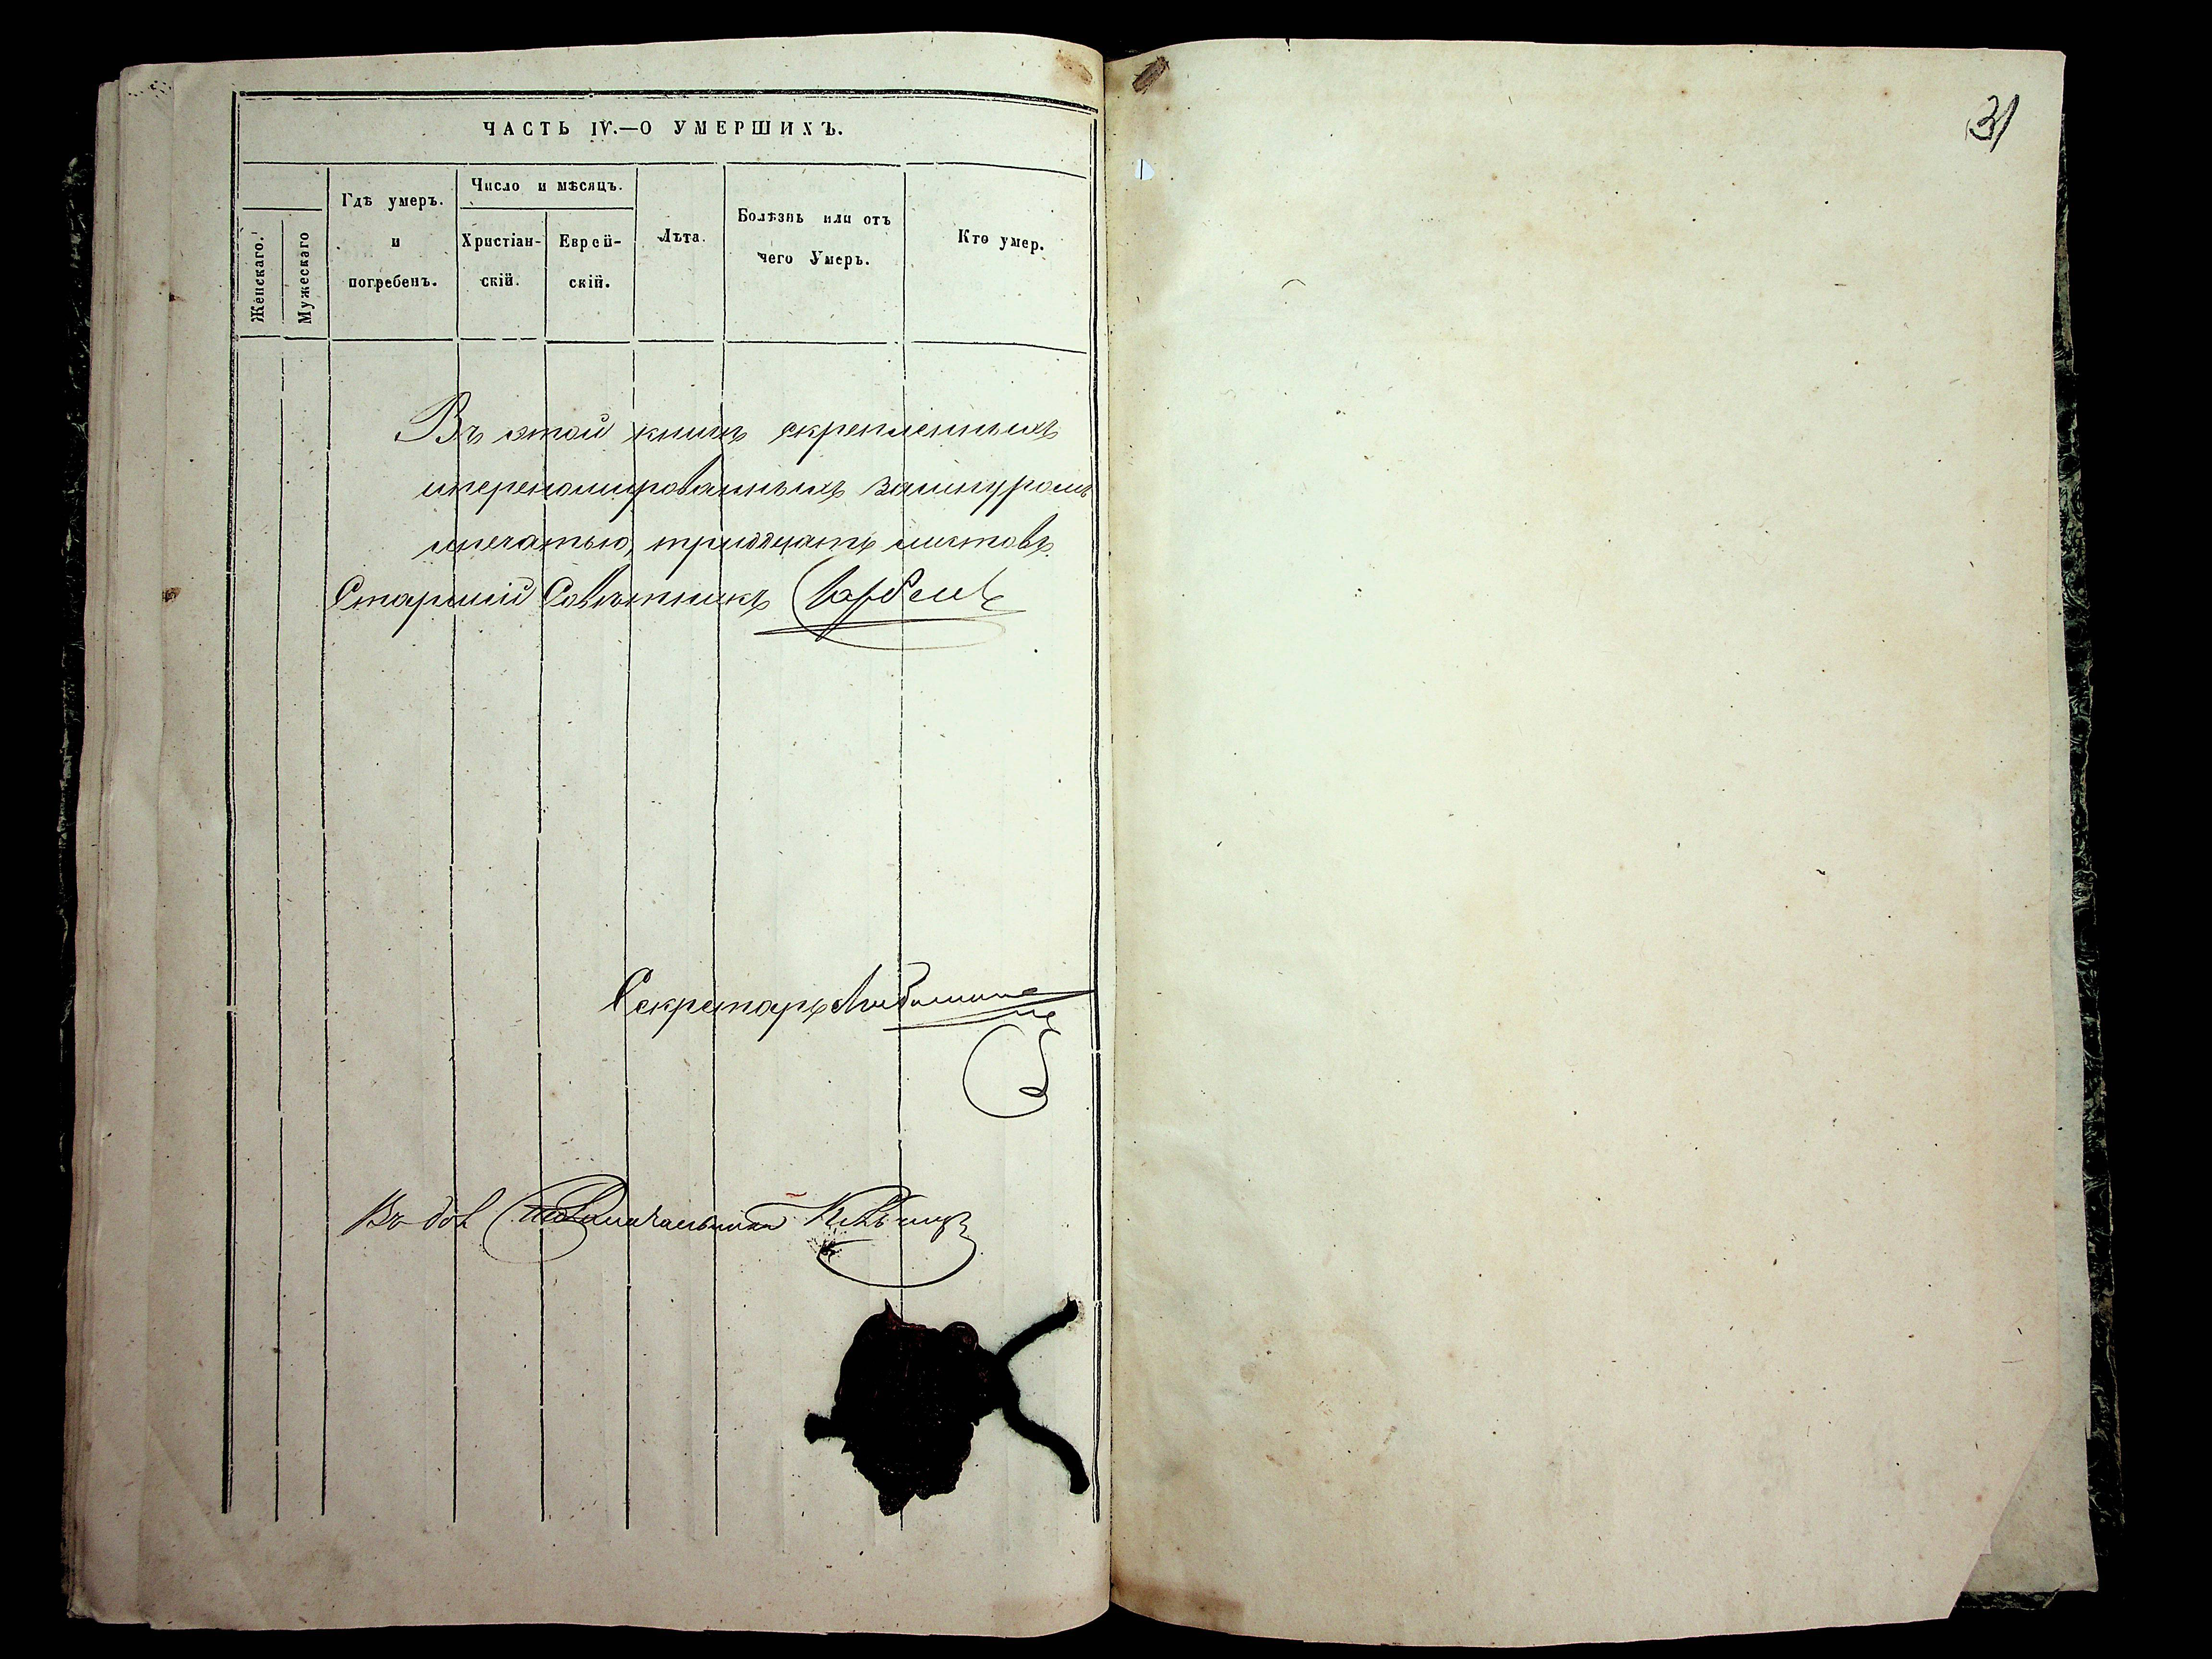 31
ЧАСТЬ IV.—О УМЕРШИХЪ.
Женскаго.
Мужескаго
Гдѣ умеръ.
и
погребенъ.
Число и мѣсяцъ.
Христіан-
скій.
Еврей-
скій.
Лѣта.
Болѣзнь или отъ
чего Умеръ.
Кто умер.
Въ этой книгѣ скрепленныхъ
ипереномированныхъ зашнуромъ
ипечатью, тридцать листовъ
Старшій Совѣтникъ
Секретарь